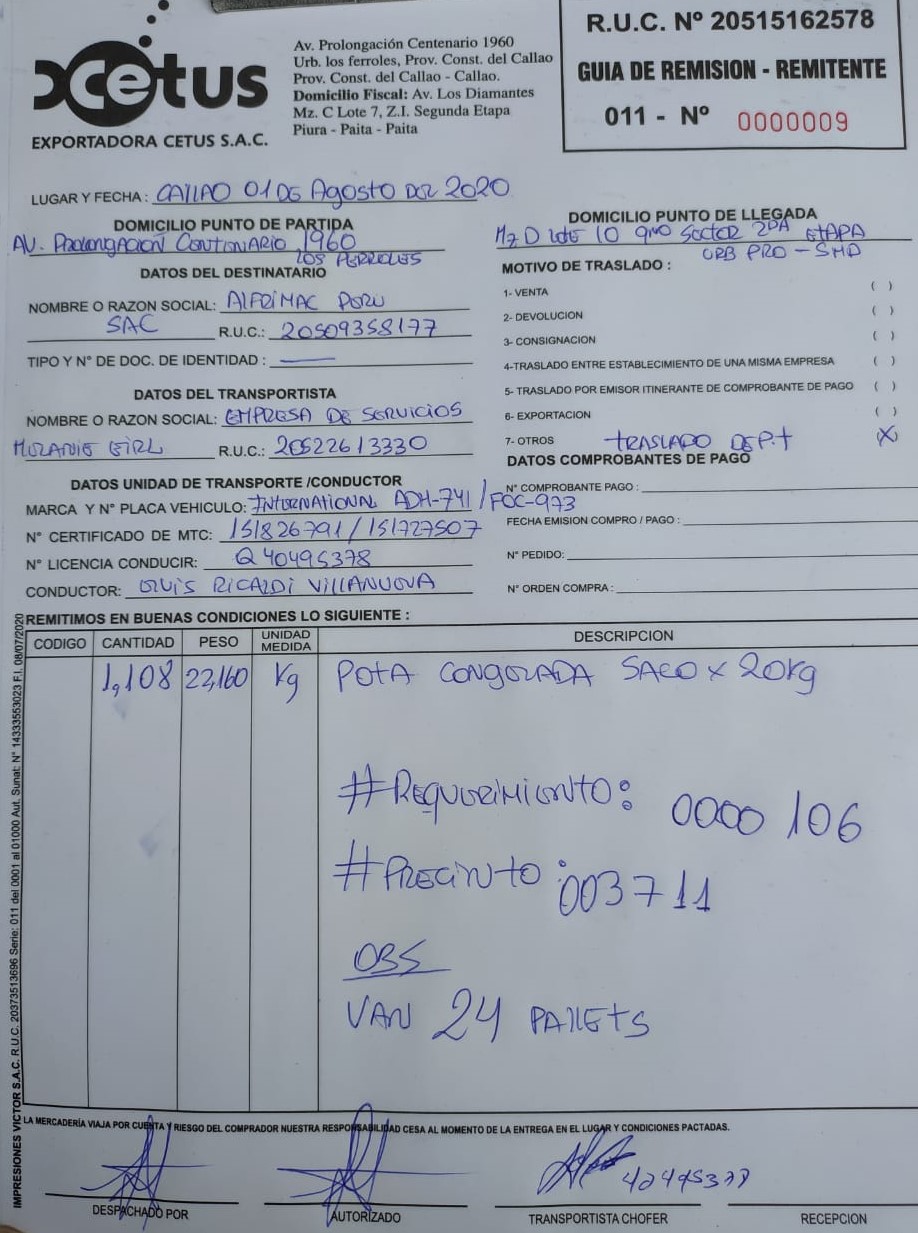 Cetus
EXPORTADORA CETUS S.A.C.
Av. Prolongación Centenario 1960
Urb. los ferroles, Prov. Const. del Callao
Prov. Const. del Callao - Callao.
Domicilio Fiscal: Av. Los Diamantes
Mz. C Lote 7, Z.I. Segunda Etapa
Piura - Paita - Paita
R.U.C. Nº 20515162578
GUIA DE REMISION - REMITENTE
011 - Nº 0000009
LUGAR Y FECHA : CAllAO 01 DE Agosto DEL 2020
DOMICILIO PUNTO DE PARTIDA
AV. PROLONGACION CENTINARIO 1960
LOS FERROLES
DOMICILIO PUNTO DE LLEGADA
Mz D lote 10 4to Sector 2DA ETAPA
URB PRO - SMP
DATOS DEL DESTINATARIO
NOMBRE O RAZON SOCIAL: AlFRIMAC PERU
SAC R.U.C.: 20509358177
TIPO Y N° DE DOC. DE IDENTIDAD :
MOTIVO DE TRASLADO :
1- VENTA ( )
2- DEVOLUCION ( )
3- CONSIGNACION ( )
4-TRASLADO ENTRE ESTABLECIMIENTO DE UNA MISMA EMPRESA ( )
5- TRASLADO POR EMISOR ITINERANTE DE COMPROBANTE DE PAGO ( )
6- EXPORTACION ( )
7- OTROS TRASLADO DE P.t (X)
DATOS DEL TRANSPORTISTA
NOMBRE O RAZON SOCIAL: EMPRESA DE SERVICIOS
MELANIE EIRL R.U.C.: 20522613330
DATOS UNIDAD DE TRANSPORTE /CONDUCTOR
MARCA Y N° PLACA VEHICULO: INTERNATIONAL ADH-741 / FOC-973
N° CERTIFICADO DE MTC: 151826791 / 151727507
N° LICENCIA CONDUCIR: Q 40495378
CONDUCTOR: lUIS RICALDI VILLANUEVA
DATOS COMPROBANTES DE PAGO
N° COMPROBANTE PAGO :
FECHA EMISION COMPRO / PAGO :
N° PEDIDO:
N° ORDEN COMPRA :
REMITIMOS EN BUENAS CONDICIONES LO SIGUIENTE :
CODIGO CANTIDAD PESO UNIDAD MEDIDA DESCRIPCION
1,108 22,160 Kg POTA CONGELADA SACO x 20Kg
#REQUERIMIENTO: 0000 106
#PRECINTO: 003711
OBS
VAN 24 PAllETS
IMPRESIONES VICTOR S.A.C. R.U.C. 20373513696 Serie: 011 del 0001 al 01000 Aut. Sunat: N° 14333553023 F.I. 08/07/2020
LA MERCADERÍA VIAJA POR CUENTA Y RIESGO DEL COMPRADOR NUESTRA RESPONSABILIDAD CESA AL MOMENTO DE LA ENTREGA EN EL LUGAR Y CONDICIONES PACTADAS.
40495378
DESPACHADO POR
AUTORIZADO
TRANSPORTISTA CHOFER
RECEPCION